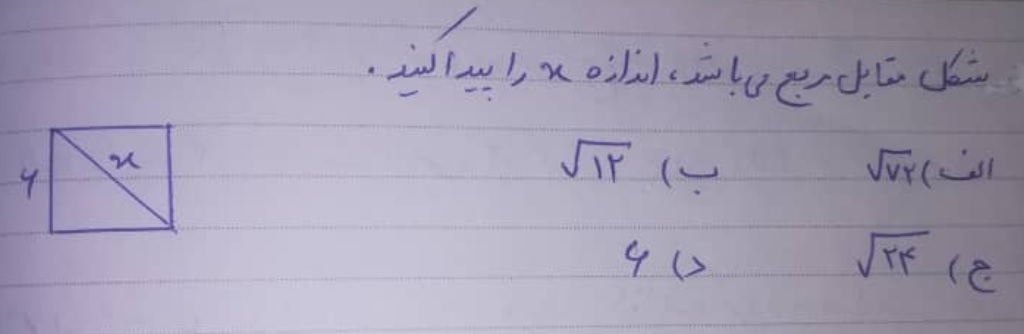 شکل مقابل مربع می باشد، اندازه x را پیدا کنید.
الف) √۷۲ ب) √۱۲
x
۶
ج) √۲۴ د) ۶